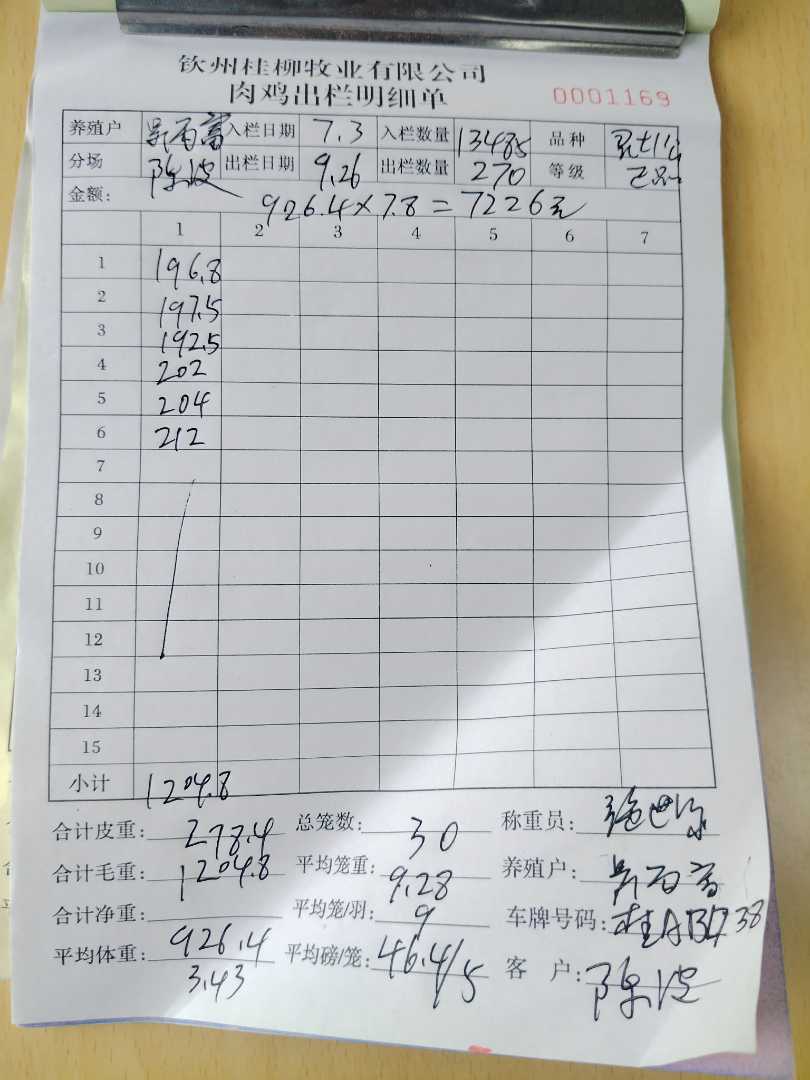 钦州桂柳牧业有限公司
肉鸡出栏明细单 0001169
养殖户 入栏日期 7.3 入栏数量 13485 品种
分场 陈波 出栏日期 9.26 出栏数量 270 等级
金额: 926.4×7.8=7226元
1 2 3 4 5 6 7
1 196.8
2 197.5
3 192.5
4 202
5 204
6 212
7
8
9
10
11
12
13
14
15
小计 1204.8
合计皮重: 278.4 总笼数: 30 称重员:
合计毛重: 1204.8 平均笼重: 9.28 养殖户:
合计净重: 926.4 平均笼/羽: 9 车牌号码:
平均体重: 3.43 平均磅/笼: 46.4/5 客 户: 陈波